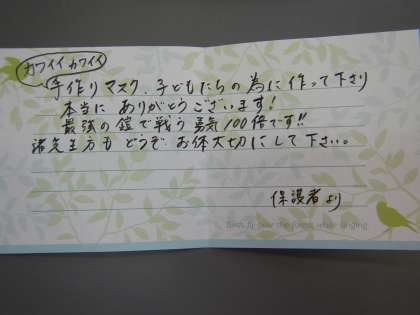 カワイイ カワイイ
手作りマスク、子どもたちの為に作って下さり
本当に ありがとうございます!
最強の鎧で戦う勇気100倍です!!
諸先生方も どうぞ お体大切にして下さい。
保護者より
Birds fly over the forest while singing